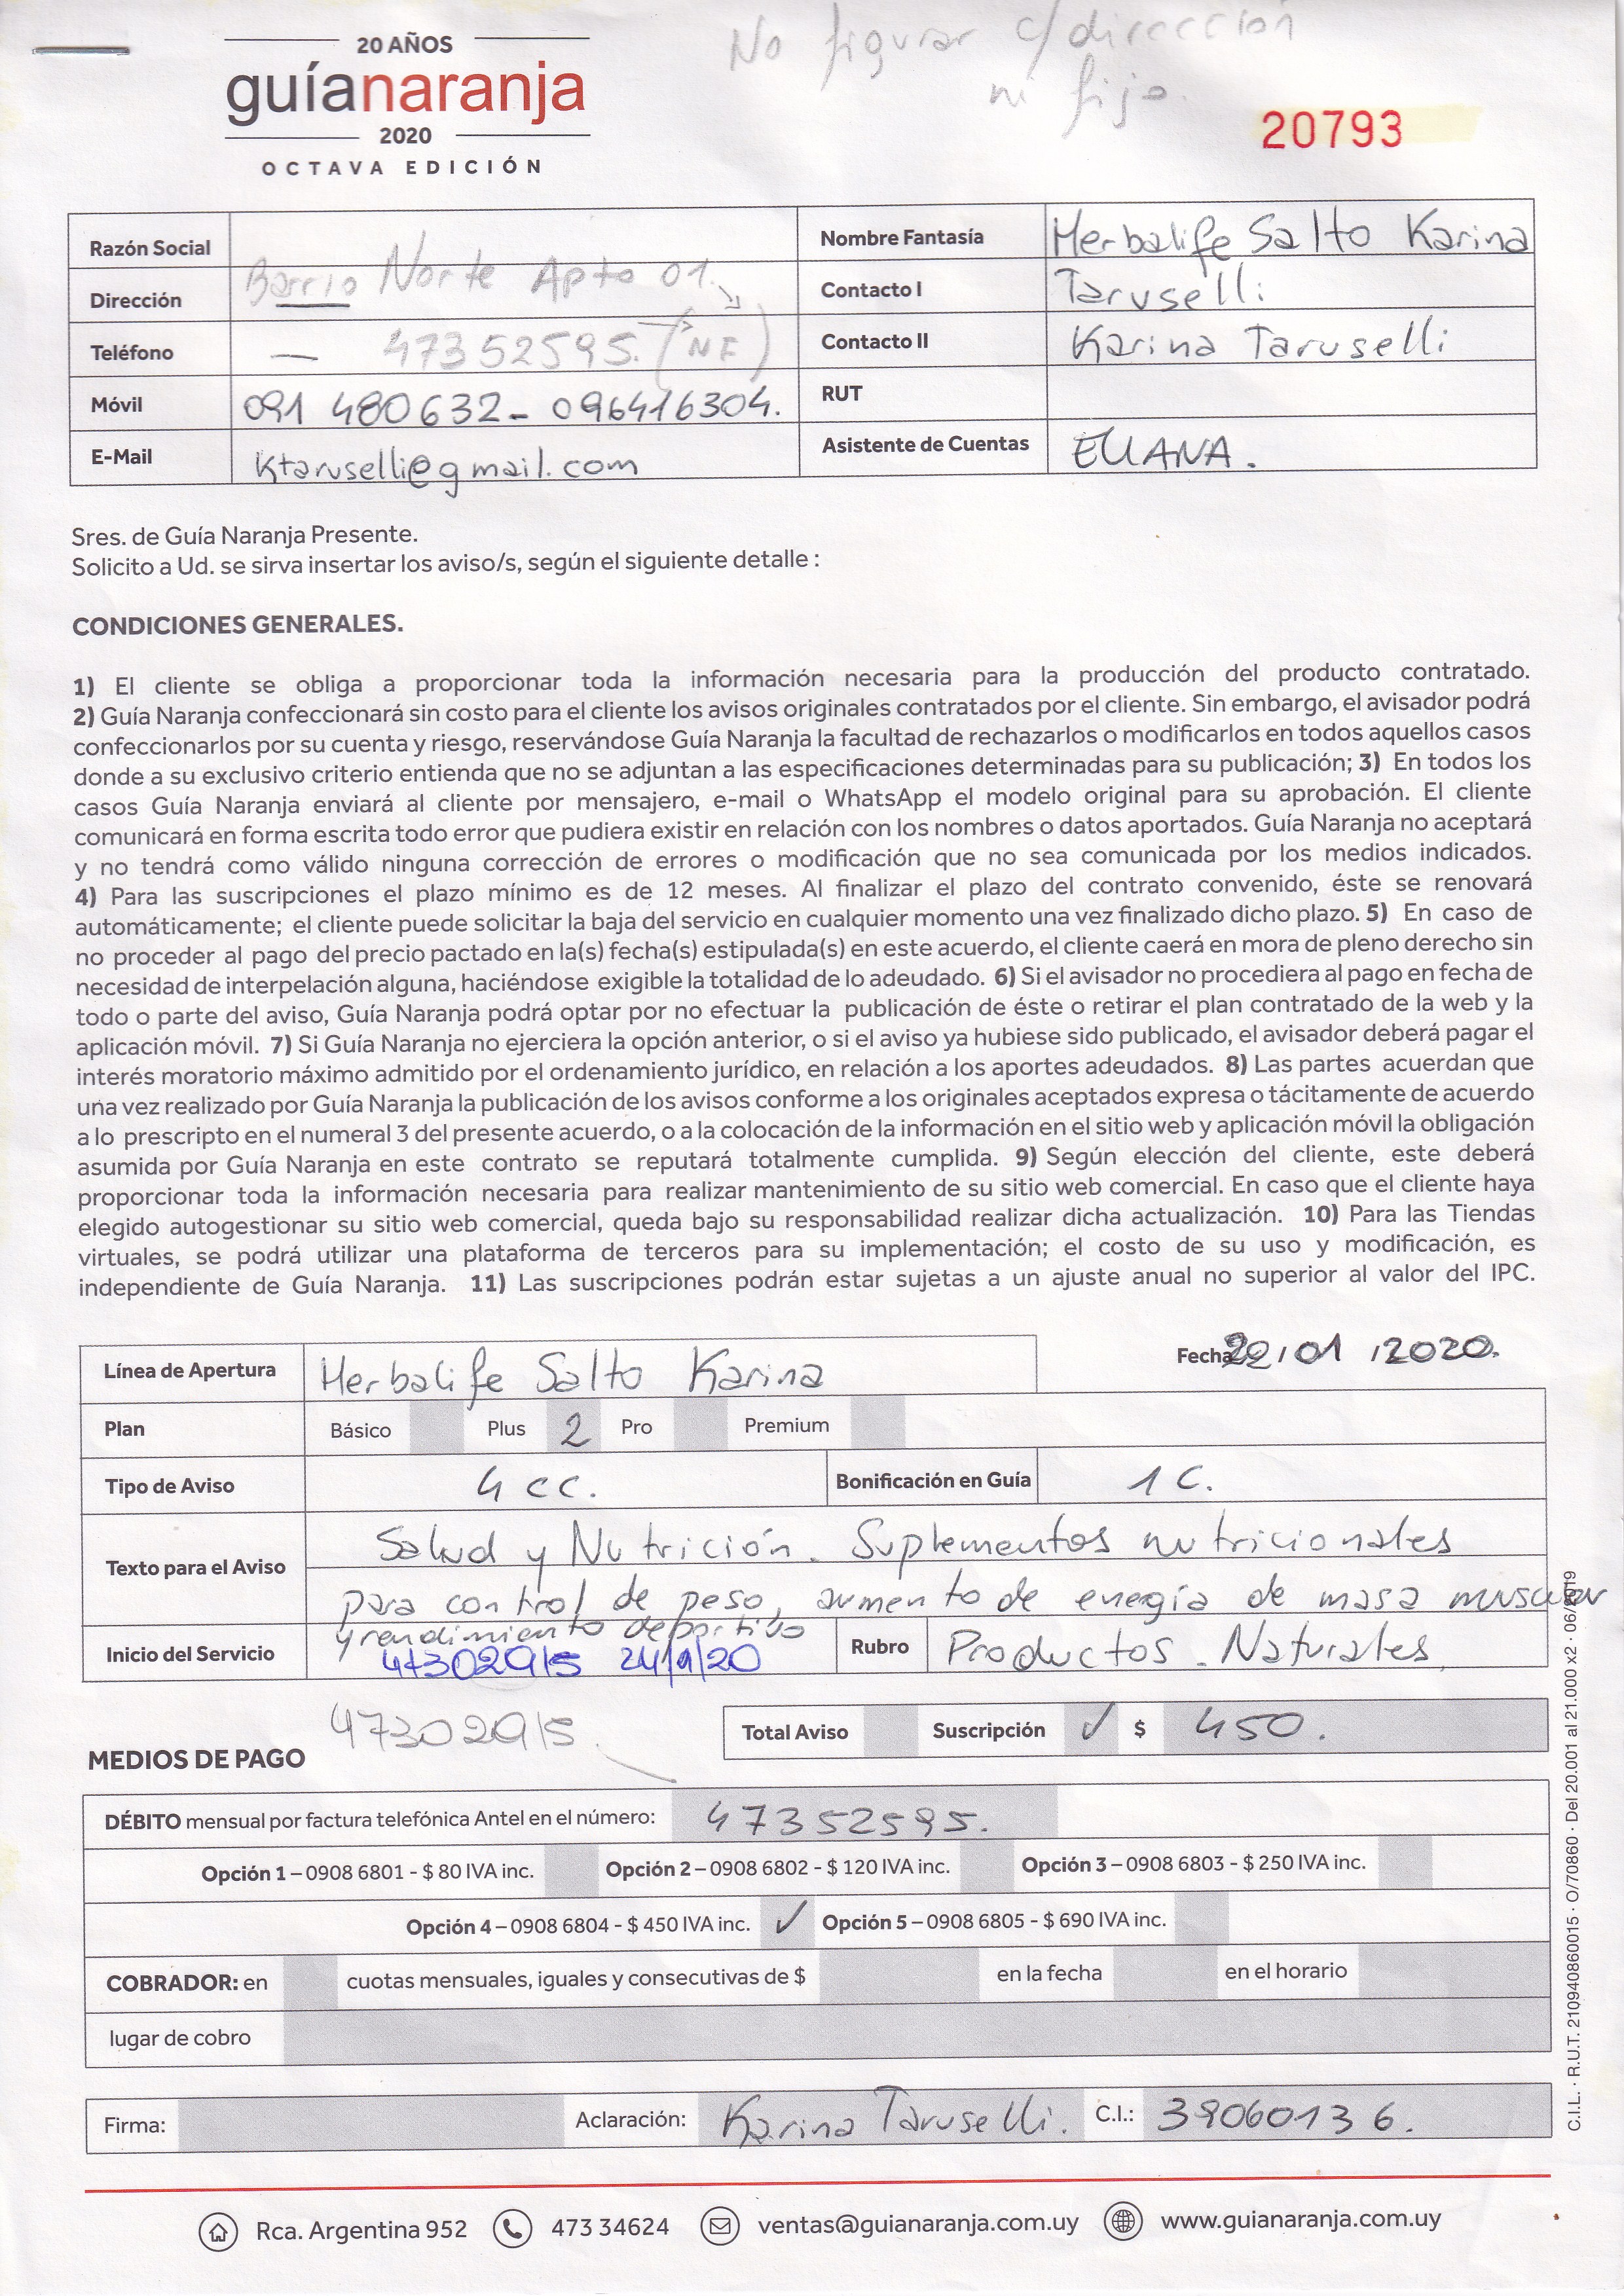 No figurar c/dirección
ni fijo.
20 AÑOS
guíanaranja
2020
OCTAVA EDICIÓN
20793
Razón Social
Nombre Fantasía Herbalife Salto Karina
Dirección Barrio Norte Apto 01.
Contacto I Taruselli
Teléfono — 47352595. (NF)
Contacto II Karina Taruselli
Móvil 091 480632 - 096416304.
RUT
E-Mail ktaruselli@gmail.com
Asistente de Cuentas ELIANA.
Sres. de Guía Naranja Presente.
Solicito a Ud. se sirva insertar los aviso/s, según el siguiente detalle :
CONDICIONES GENERALES.
1) El cliente se obliga a proporcionar toda la información necesaria para la producción del producto contratado.
2) Guía Naranja confeccionará sin costo para el cliente los avisos originales contratados por el cliente. Sin embargo, el avisador podrá
confeccionarlos por su cuenta y riesgo, reservándose Guía Naranja la facultad de rechazarlos o modificarlos en todos aquellos casos
donde a su exclusivo criterio entienda que no se adjuntan a las especificaciones determinadas para su publicación; 3) En todos los
casos Guía Naranja enviará al cliente por mensajero, e-mail o WhatsApp el modelo original para su aprobación. El cliente
comunicará en forma escrita todo error que pudiera existir en relación con los nombres o datos aportados. Guía Naranja no aceptará
y no tendrá como válido ninguna corrección de errores o modificación que no sea comunicada por los medios indicados.
4) Para las suscripciones el plazo mínimo es de 12 meses. Al finalizar el plazo del contrato convenido, éste se renovará
automáticamente; el cliente puede solicitar la baja del servicio en cualquier momento una vez finalizado dicho plazo. 5) En caso de
no proceder al pago del precio pactado en la(s) fecha(s) estipulada(s) en este acuerdo, el cliente caerá en mora de pleno derecho sin
necesidad de interpelación alguna, haciéndose exigible la totalidad de lo adeudado. 6) Si el avisador no procediera al pago en fecha de
todo o parte del aviso, Guía Naranja podrá optar por no efectuar la publicación de éste o retirar el plan contratado de la web y la
aplicación móvil. 7) Si Guía Naranja no ejerciera la opción anterior, o si el aviso ya hubiese sido publicado, el avisador deberá pagar el
interés moratorio máximo admitido por el ordenamiento jurídico, en relación a los aportes adeudados. 8) Las partes acuerdan que
una vez realizado por Guía Naranja la publicación de los avisos conforme a los originales aceptados expresa o tácitamente de acuerdo
a lo prescripto en el numeral 3 del presente acuerdo, o a la colocación de la información en el sitio web y aplicación móvil la obligación
asumida por Guía Naranja en este contrato se reputará totalmente cumplida. 9) Según elección del cliente, este deberá
proporcionar toda la información necesaria para realizar mantenimiento de su sitio web comercial. En caso que el cliente haya
elegido autogestionar su sitio web comercial, queda bajo su responsabilidad realizar dicha actualización. 10) Para las Tiendas
virtuales, se podrá utilizar una plataforma de terceros para su implementación; el costo de su uso y modificación, es
independiente de Guía Naranja. 11) Las suscripciones podrán estar sujetas a un ajuste anual no superior al valor del IPC.
Fecha /01 /2020.
Línea de Apertura Herbalife Salto Karina
Plan Básico Plus 2 Pro Premium
Tipo de Aviso 4 cc. Bonificación en Guía 1 C.
Texto para el Aviso Salud y Nutrición. Suplementos nutricionales
para control de peso, aumento de energía de masa muscular
y rendimiento deportivo
Inicio del Servicio 47302915 24/1/20 Rubro Productos Naturales
47302915
Total Aviso Suscripción ✓ $ 450.
MEDIOS DE PAGO
DÉBITO mensual por factura telefónica Antel en el número: 47352595.
Opción 1 – 0908 6801 - $ 80 IVA inc. Opción 2 – 0908 6802 - $ 120 IVA inc. Opción 3 – 0908 6803 - $ 250 IVA inc.
Opción 4 – 0908 6804 - $ 450 IVA inc. ✓ Opción 5 – 0908 6805 - $ 690 IVA inc.
COBRADOR: en cuotas mensuales, iguales y consecutivas de $ en la fecha en el horario
lugar de cobro
Firma: Aclaración: Karina Taruselli. C.I.: 39060136.
C.I.L. · R.U.T. 210940860015 · O/70860 · Del 20.001 al 21.000 x2 · 06/2019
Rca. Argentina 952 473 34624 ventas@guianaranja.com.uy www.guianaranja.com.uy